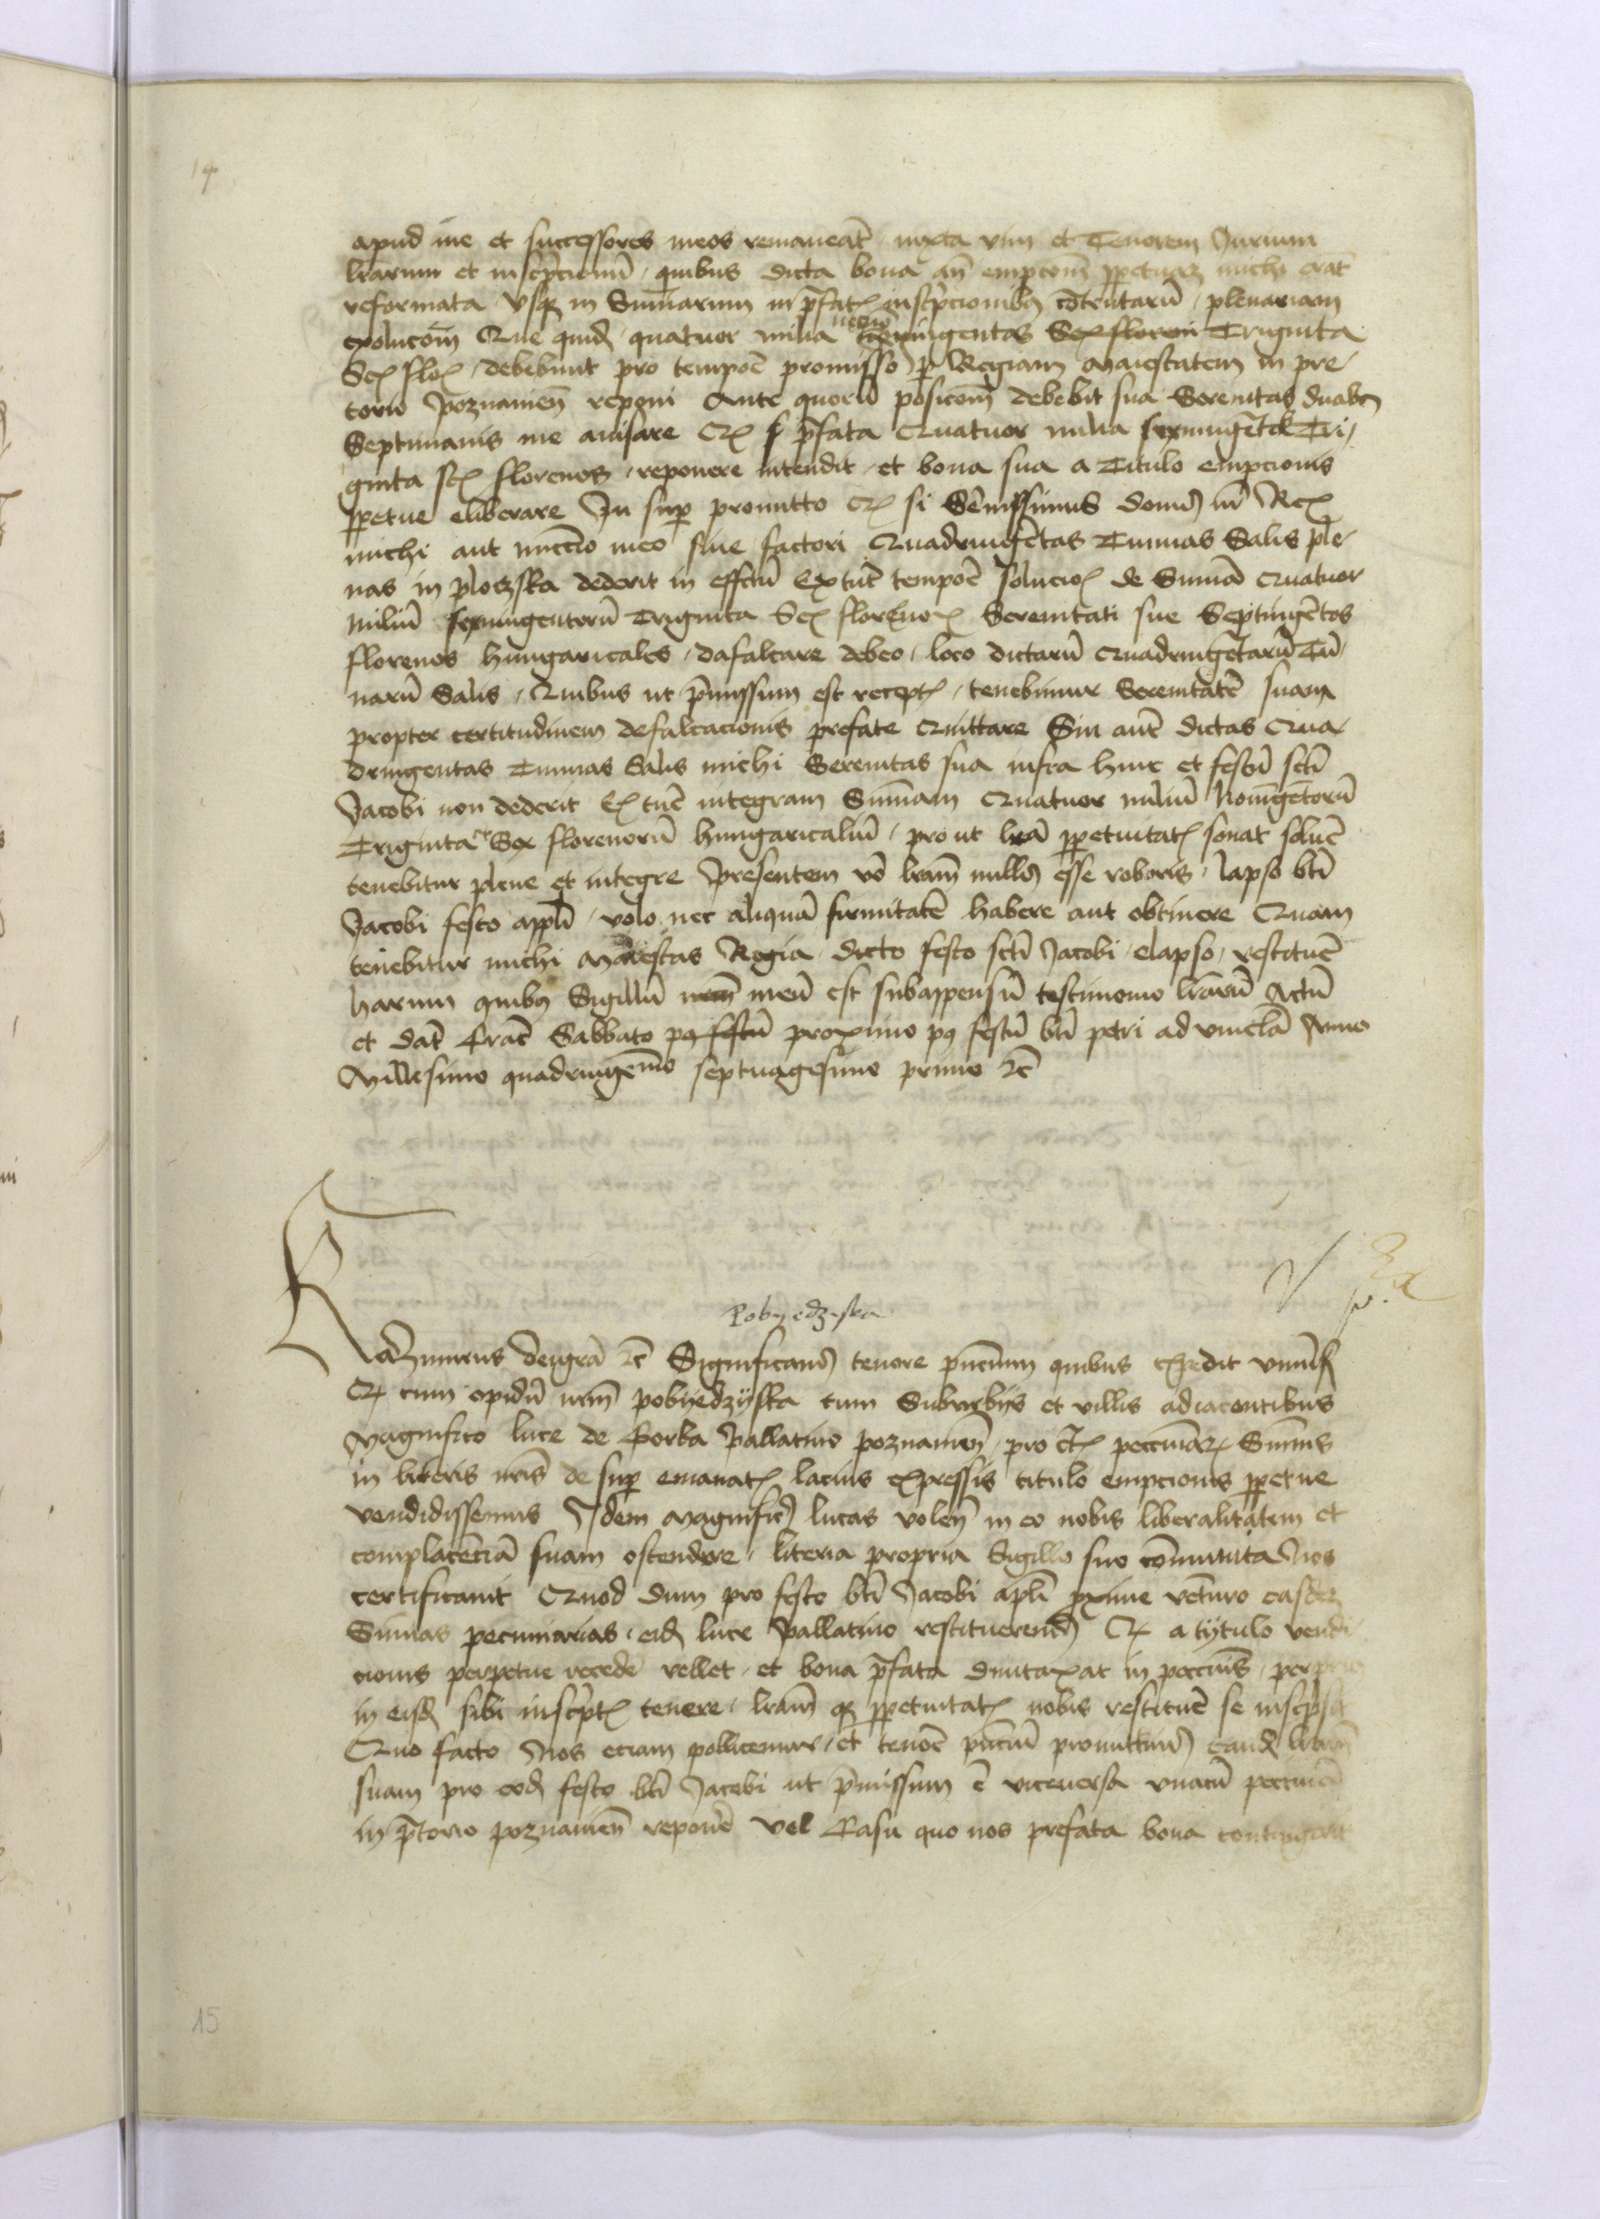 14
apud me et successores meos remaneāt / iuxta vim et Tenorem Jurium
lrarum et inscrīpcionū / quibus dicta bona an̄ empcōm ꝑpetuaꝫ michi erāt
reformata Vsqꝫ in Sum̄arum in p̄fatꝭ inscrīpcionibꝰ cōtentarū / plenariam
exolucōm Que quidꝫ / quatuor milia noni ngentas Sex floren Triginta
Sex floꝭ / debebunt pro tempoꝭ promisso ꝑ Regiam Maiestatem in pre
torio Poznanieñ reponi Ante quorū posicōm debebit sua Serenitas duabꝰ
Septimanis me auisare Qꝭ p̄fata Quatuor milia sexingētos Tri /
ginta sex florenos / reponere intendit / et bona sua a Titulo empcionis
ꝑpetue eliberare In suꝑ promitto Qꝭ si Sēnissimus domꝰ nr̄ Rex
michi aut nuncio meo siue factori Quadringētas Tunnas Salis ple
nas in ploczska dederit in effctū Ex tūc tempoꝭ soluciōꝭ de Summā Quatuor
miliū sexningentorū Triginta Sex florenoꝝ Serenitati sue Septingētos
florenos hungaricales / dafalcare debeo / loco dictarū Quadringētarū Tū /
narū Salis / Quibus ut p̄missum est receptꝭ / tenebimur Serenitatē suam
propter certitudinem defalcacionis prefate Quittare Sin autē dictas Qua
dringentas Tunnas Salis michi Serenitas sua infra hinc et festū sctī
Jacobi non dederit Ex tūc integram Sum̄am Quatuor miliū Noningētorū
Triginta et Sex florenorū hungaricaliū / pro ut lrā ꝑpetuitatꝭ sonat soluē
tenebitur plene et integre Presentem vō lram̄ nullꝰ esse roboris / lapso btī
Jacobi festo apli / volo nec aliquā firmitatē habere aut obtinere Quam
tenebitur michi Maiestas Regia / dicto festo sctī Jacobi / elapso / restituē
harum quibꝰ Sigillū meū est subappensū testimonio lrārū Actū
et dat̄ Crac̄ Sabbato pꝰ festū proximo pꝰ festū btī petri ad vincla Anno
Millesimo quadringēmo septuagesimo primo ꝛc̄
Pobyedzyska
Kazimirus deigrā ꝛc̄ Significamꝰ tenore p̄ncium quibus expedit vniūsꝭ
Qꝭ cum opidū nrm̄ pobyedzyska cum Suburbys et villis adiacentibus
Magnifico luce de Gorka Pallatino poznanieñ / pro ctꝭ peccuniarꝭ Sum̄is
in literis nrīs de suꝑ emanatꝭ lacius expressis titulo empcionis ꝑpetue
vendidissemus Idem Magnificꝰ lucas voleñ in eo nobis liberalitatem et
complacēciā suam ostendere / literia propria Sigillo suo cōmunita Nos
certificauit Quod dum pro festo btī Jacobi apli ꝓxime vēturo easdeꝫ
Sum̄as pecuniarias / eidꝫ luce Pallatino restitueremꝰ Qꝭ a tytulo vendi
cionis perpetue recedē vellet / et bona p̄fata dumtaxat in peccunīs
in eisdꝫ sibi inscrīptꝭ tenere / lram̄ qꝫ ꝑpetuitatꝭ nobis restituē se inscrīpsit
Quo facto Nos eciam pollicemur / et tenoꝭ p̄nciū promittimꝰ eandꝫ lram̄
suam pro eodꝫ festo btī Jacobi ut p̄missum ē viceuersa vnacū peccuniā
in p̄torio poznanieñ reponē Vel Casu quo nos prefata bona contingerit
15